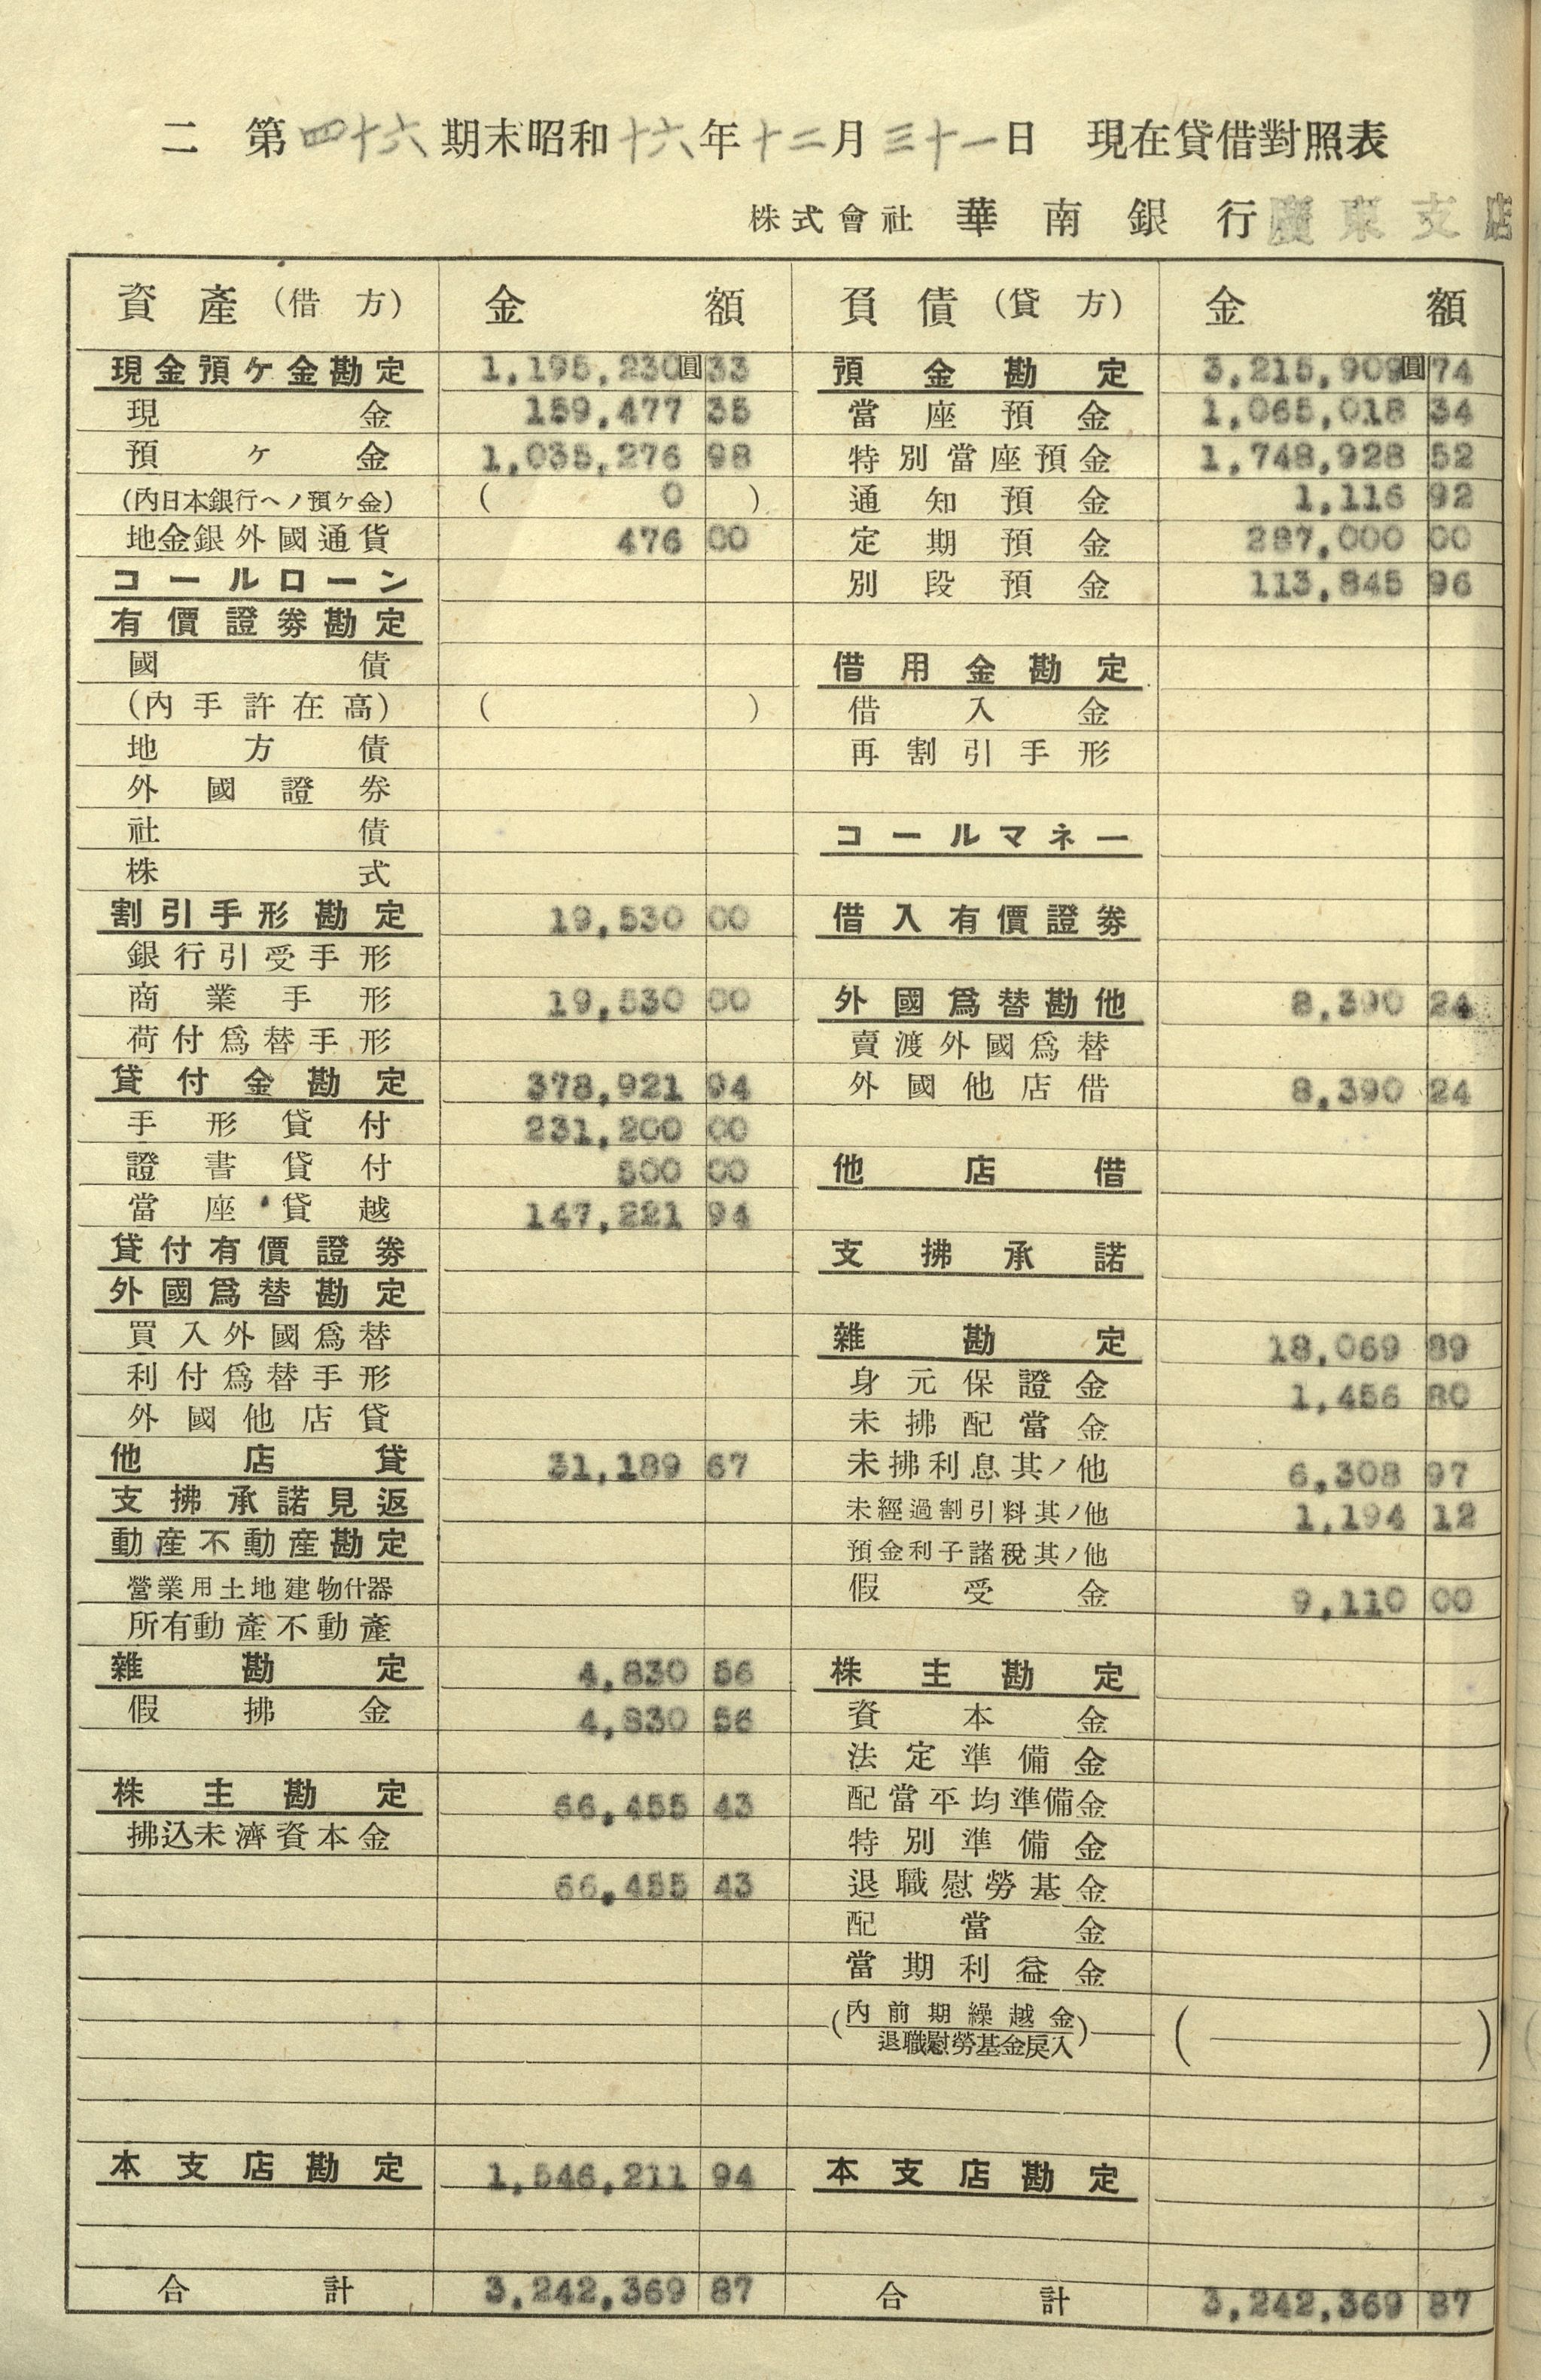 二 第四十六期末昭和十六年十二月三十一日 現在貸借對照表
株式會社 華南銀行廣東支店
資產(借方) 金額 負債(貸方) 金額
現金預ケ金勘定 1,195,230圓33 預金勘定 3,215,909圓74
現金 159,477 35 當座預金 1,065,018 34
預ケ金 1,035,276 98 特別當座預金 1,748,928 52
(內日本銀行ヘノ預ケ金) ( 0 ) 通知預金 1,116 92
地金銀外國通貨 476 00 定期預金 287,000 00
コールローン 別段預金 113,845 96
有價證劵勘定
國債 借用金勘定
(內手許在高) ( ) 借入金
地方債 再割引手形
外國證券
社債 コールマネー
株式
割引手形勘定 19,530 00 借入有價證劵
銀行引受手形
商業手形 19,530 00 外國爲替勘他 8,390 24
荷付爲替手形 賣渡外國爲替
貸付金勘定 378,921 94 外國他店借 8,390 24
手形貸付 231,200 00
證書貸付 500 00 他店借
當座貸越 147,221 94
貸付有價證劵 支拂承諾
外國爲替勘定
買入外國爲替 雜勘定 18,069 89
利付爲替手形 身元保證金 1,456 80
外國他店貸 未拂配當金
他店貸 31,189 67 未拂利息其ノ他 6,308 97
支拂承諾見返 未經過割引料其ノ他 1,194 12
動產不動產勘定 預金利子諸稅其ノ他
營業用土地建物什器 假受金 9,110 00
所有動產不動產
雜勘定 4,830 56 株主勘定
假拂金 4,830 56 資本金
法定準備金
株主勘定 66,455 43 配當平均準備金
拂込未濟資本金 特別準備金
66,455 43 退職慰勞基金
配當金
當期利益金
(內前期繰越金 ( )
退職慰勞基金戾入)
本支店勘定 1,546,211 94 本支店勘定
合計 3,242,369 87 合計 3,242,369 87